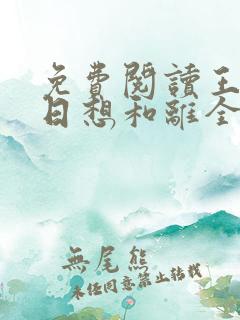 免費閱讀王
日想和離全
無尾熊
未經同意禁止轉載